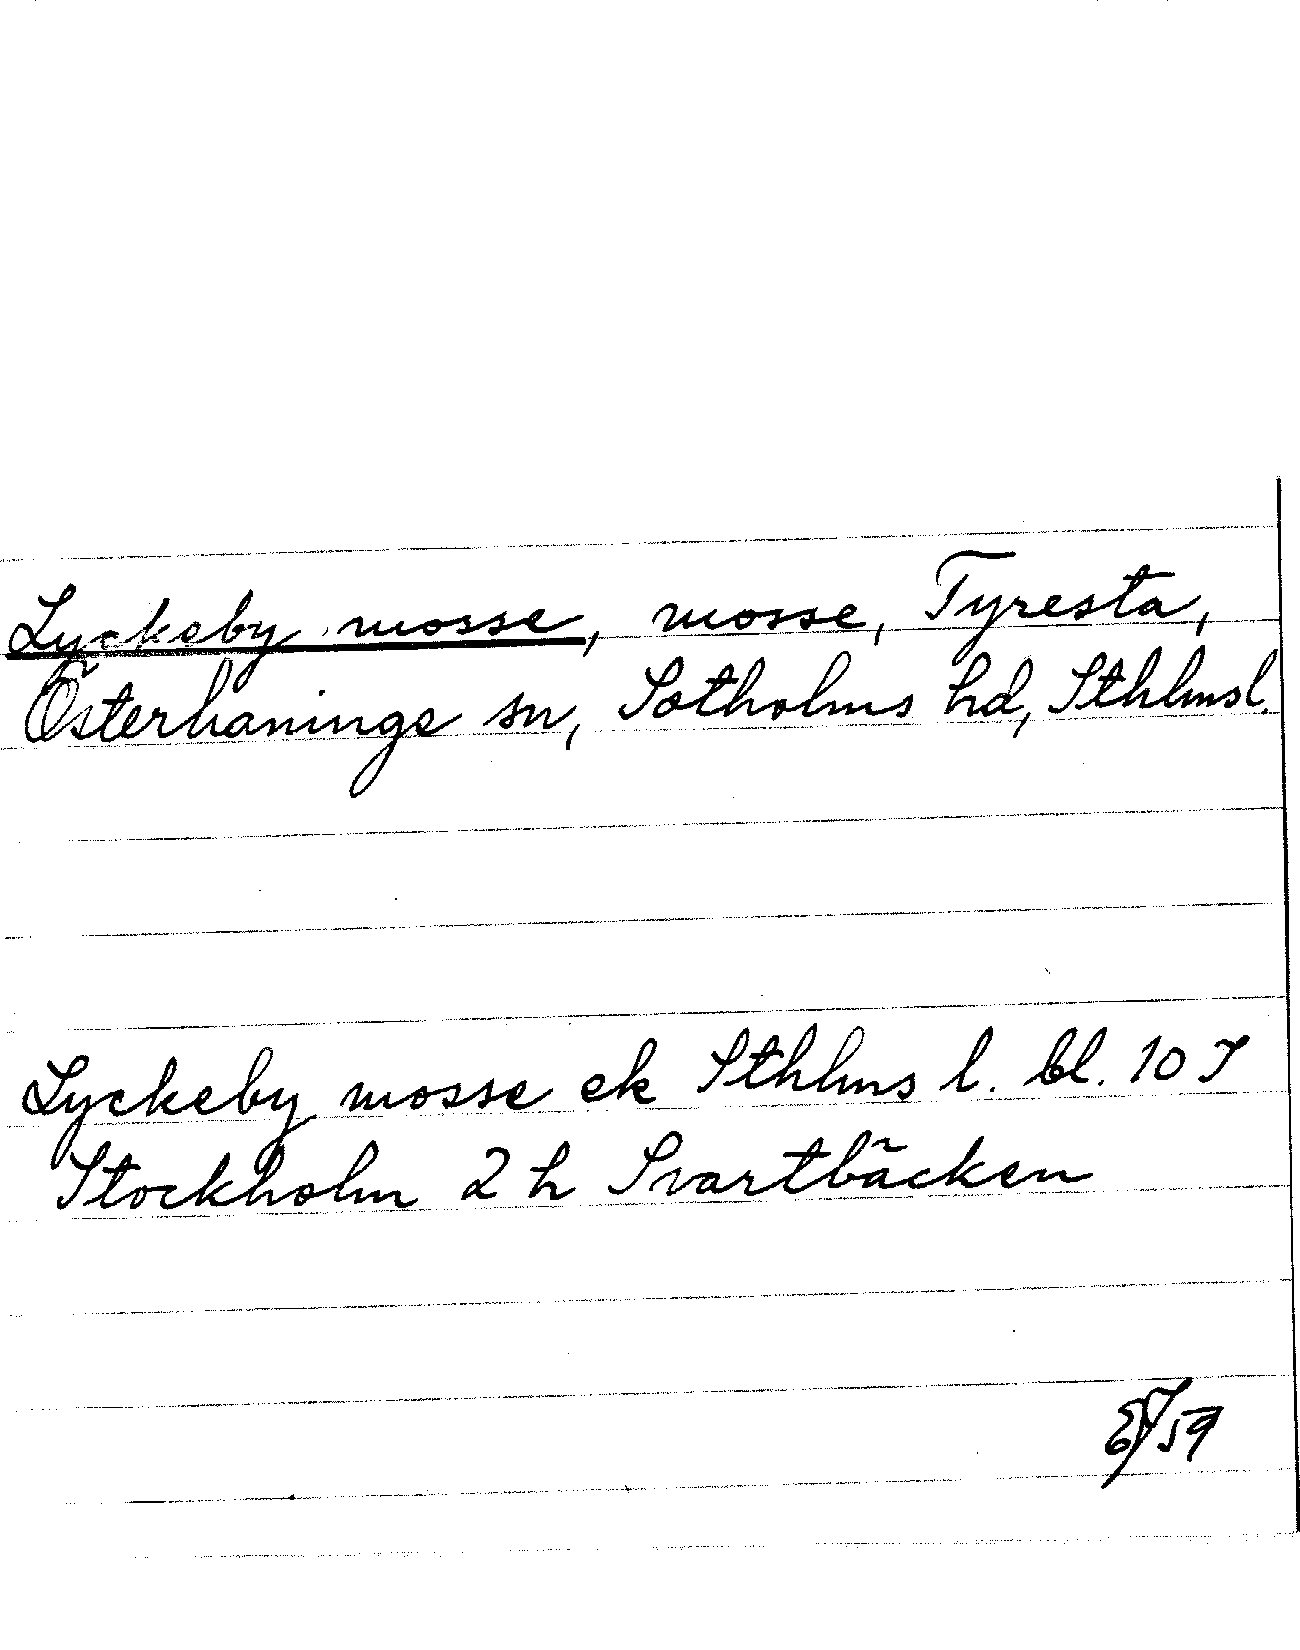 Lyckeby mosse, mosse, Tyresta,
Österhanings sn, Sotholms hd, Sthlmsl.
Lyckeby mosse ek Sthlms l. bl. 10 I
Stockholm 2 h Svartbäcken